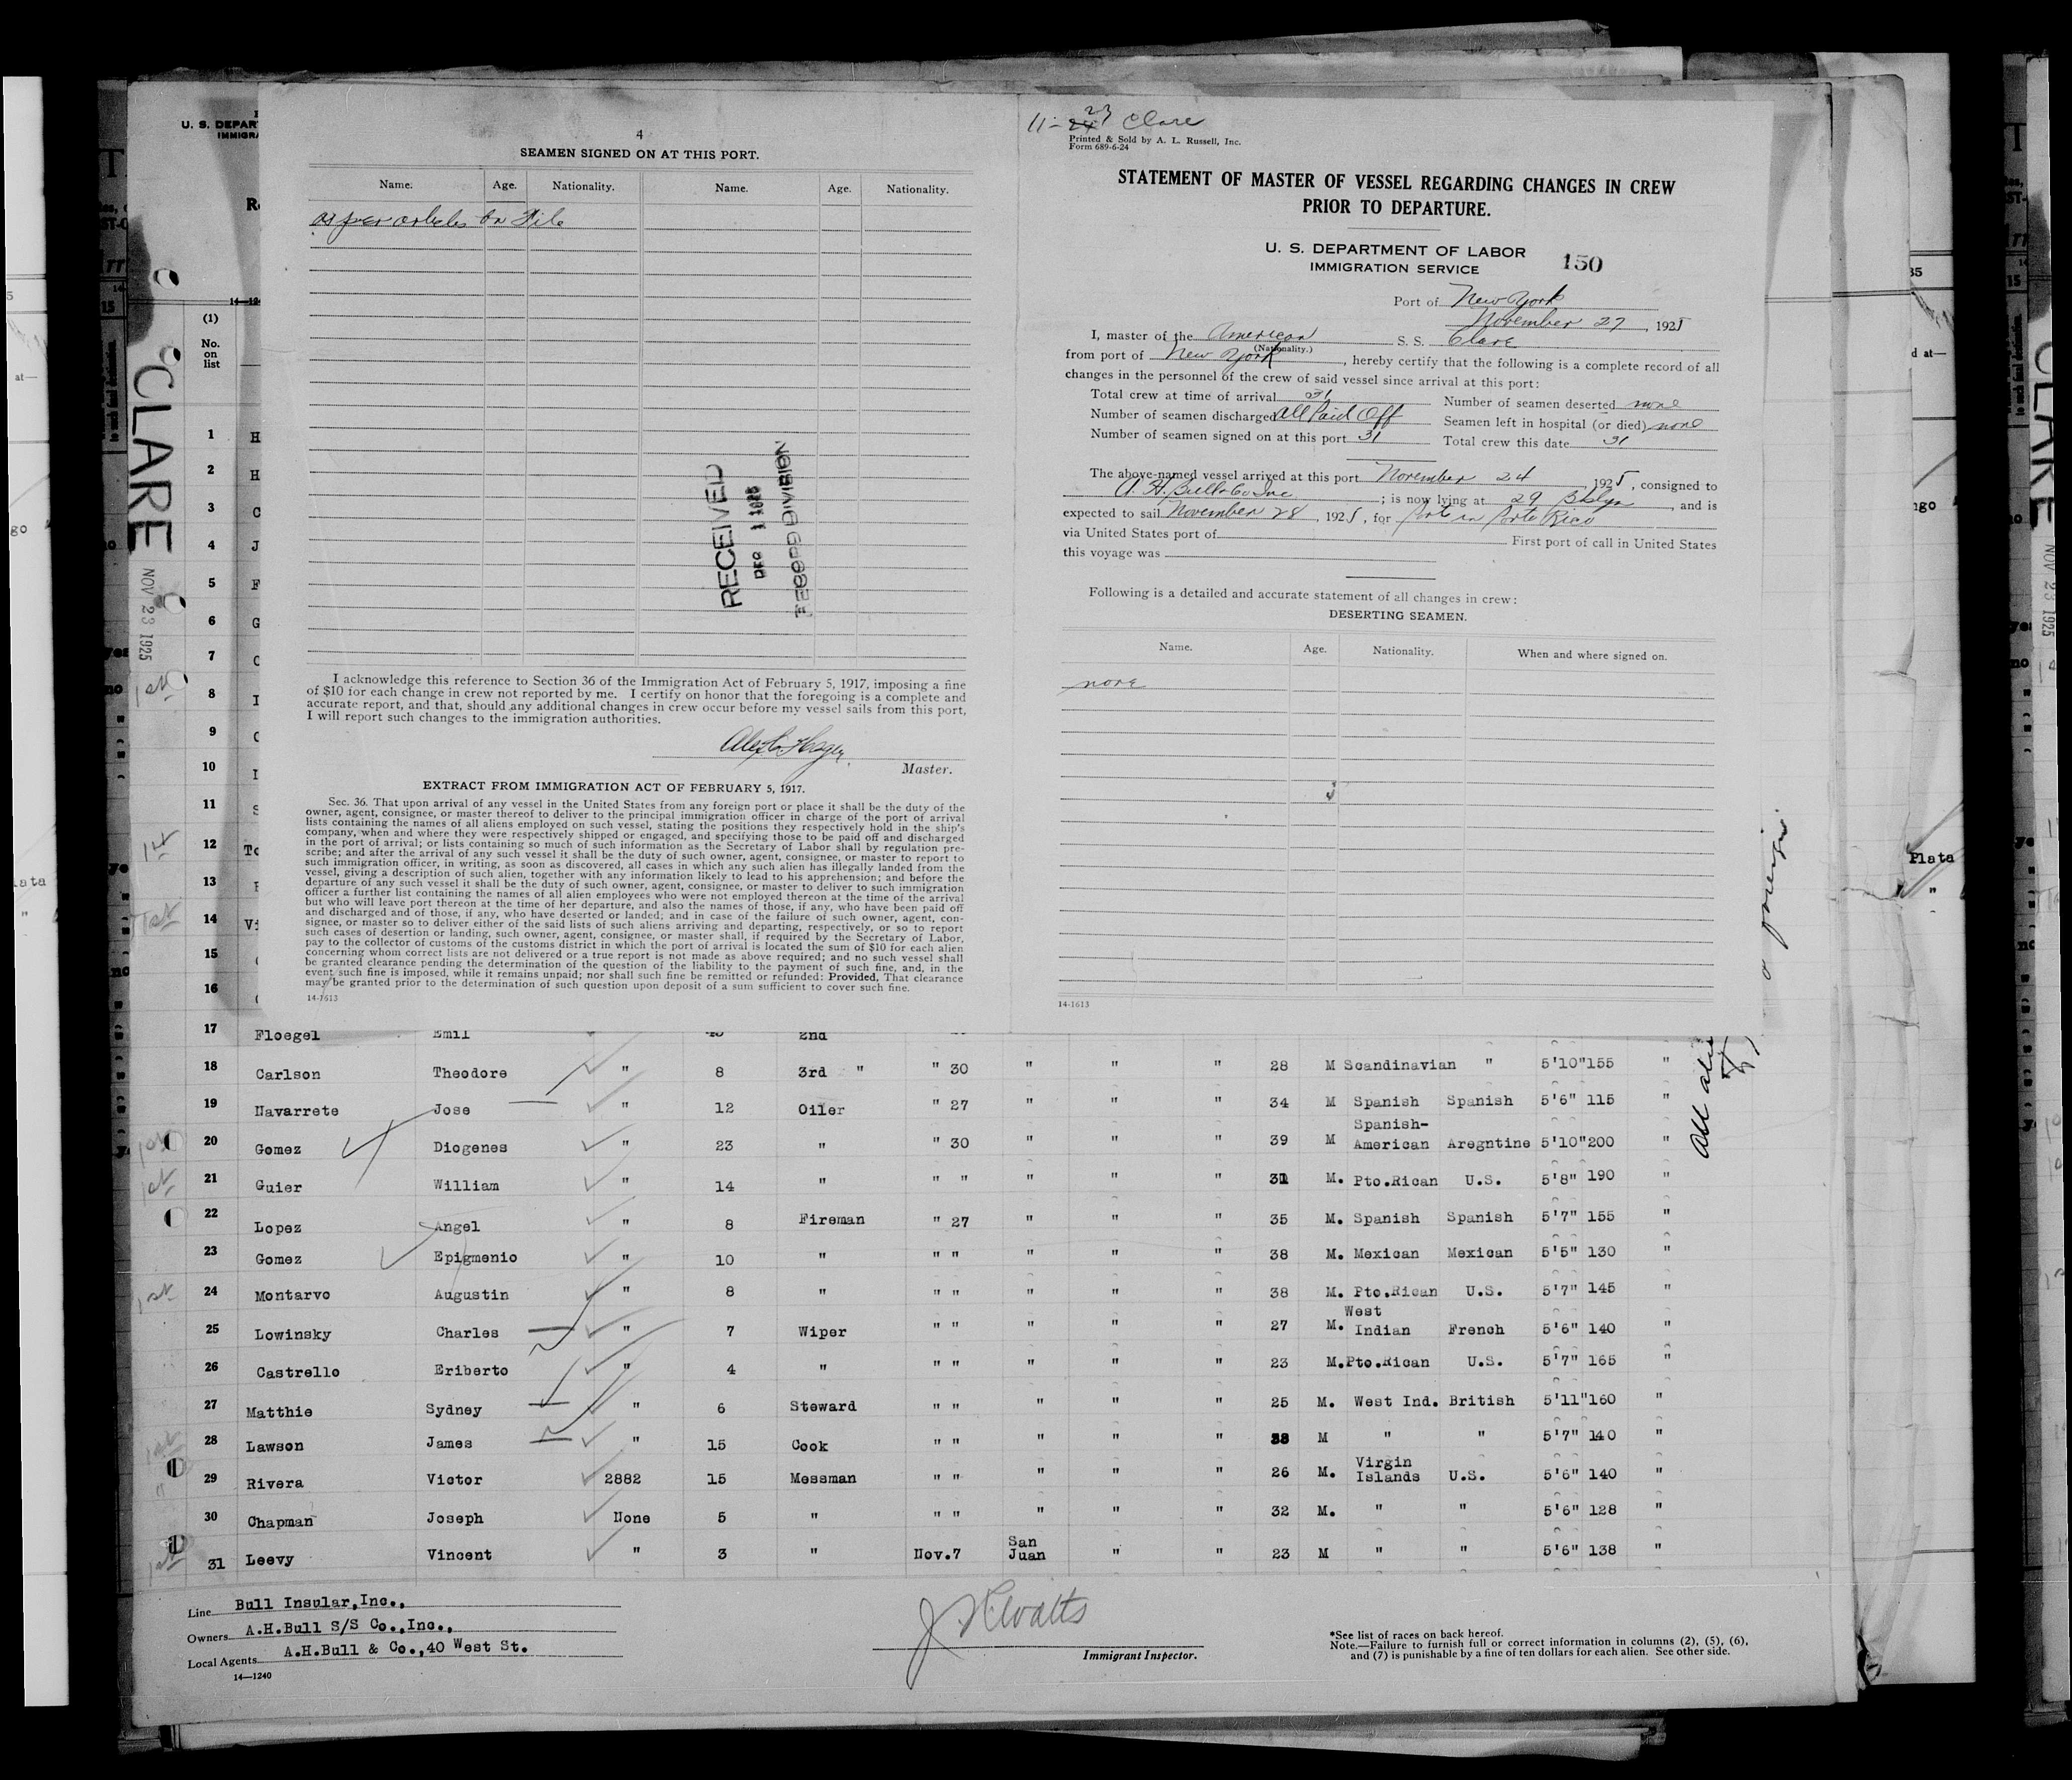 4
SEAMEN SIGNED ON AT THIS PORT.
Name. Age. Nationality. Name. Age. Nationality.
as per articles on File
RECEIVED
DEC 1 1925
DIVISION
I acknowledge this reference to Section 36 of the Immigration Act of February 5, 1917, imposing a fine
of $10 for each change in crew not reported by me. I certify on honor that the foregoing is a complete and
accurate report, and that, should any additional changes in crew occur before my vessel sails from this port,
I will report such changes to the immigration authorities.
Master.
EXTRACT FROM IMMIGRATION ACT OF FEBRUARY 5, 1917.
Sec. 36. That upon arrival of any vessel in the United States from any foreign port or place it shall be the duty of the
owner, agent, consignee, or master thereof to deliver to the principal immigration officer in charge of the port of arrival
lists containing the names of all aliens employed on such vessel, stating the positions they respectively hold in the ship's
company, when and where they were respectively shipped or engaged, and specifying those to be paid off and discharged
in the port of arrival; or lists containing so much of such information as the Secretary of Labor shall by regulation pre-
scribe; and after the arrival of any such vessel it shall be the duty of such owner, agent, consignee, or master to report to
such immigration officer, in writing, as soon as discovered, all cases in which any such alien has illegally landed from the
vessel, giving a description of such alien, together with any information likely to lead to his apprehension; and before the
departure of any such vessel it shall be the duty of such owner, agent, consignee, or master to deliver to such immigration
officer a further list containing the names of all alien employees who were not employed thereon at the time of the arrival
but who will leave port thereon at the time of her departure, and also the names of those, if any, who have been paid off
and discharged and of those, if any, who have deserted or landed; and in case of the failure of such owner, agent, con-
signee, or master so to deliver either of the said lists of such aliens arriving and departing, respectively, or so to report
such cases of desertion or landing, such owner, agent, consignee, or master shall, if required by the Secretary of Labor,
pay to the collector of customs of the customs district in which the port of arrival is located the sum of $10 for each alien
concerning whom correct lists are not delivered or a true report is not made as above required; and no such vessel shall
be granted clearance pending the determination of the question of the liability to the payment of such fine, and, in the
event such fine is imposed, while it remains unpaid; nor shall such fine be remitted or refunded: Provided, That clearance
may be granted prior to the determination of such question upon deposit of a sum sufficient to cover such fine.
14-1613
11-23 Clare
Printed & Sold by A. L. Russell, Inc.
Form 689-6-24
STATEMENT OF MASTER OF VESSEL REGARDING CHANGES IN CREW
PRIOR TO DEPARTURE.
U. S. DEPARTMENT OF LABOR
IMMIGRATION SERVICE 150
Port of New York
November 27, 1925
I, master of the American S. S. Clare
(Nationality.)
from port of New York, hereby certify that the following is a complete record of all
changes in the personnel of the crew of said vessel since arrival at this port:
Total crew at time of arrival 31 Number of seamen deserted none
Number of seamen discharged All Paid Off Seamen left in hospital (or died) none
Number of seamen signed on at this port 31 Total crew this date 31
The above-named vessel arrived at this port November 24, 1925, consigned to
A. H. Bull & Co Inc; is now lying at 29 Bklyn, and is
expected to sail November 28, 1925, for Ports in Porto Rico
via United States port of First port of call in United States
this voyage was
Following is a detailed and accurate statement of all changes in crew:
DESERTING SEAMEN.
Name. Age. Nationality. When and where signed on.
none
14-1613
CLARE
NOV 23 1925
(1)
No.
on
list
1 H
2 H
3 C
4 J
5 F
6 G
7 C
8 I
9 C
10 I
11 S
12 To
13
14 Vi
15
16
17 Floegel Emil 2nd
18 Carlson Theodore " 8 3rd " " 30 " " " 28 M Scandinavian " 5'10" 155 "
19 Navarrete Jose " 12 Oiler " 27 " " " 34 M Spanish Spanish 5'6" 115 "
20 Gomez Diogenes " 23 " " 30 " " " 39 M Spanish-American Aregntine 5'10" 200 "
21 Guier William " 14 " " " " " " 31 M. Pto.Rican U.S. 5'8" 190 "
22 Lopez Angel " 8 Fireman " 27 " " " 35 M. Spanish Spanish 5'7" 155 "
23 Gomez Epigmenio " 10 " " " " " " 38 M. Mexican Mexican 5'5" 130 "
24 Montarvo Augustin " 8 " " " " " " 38 M. Pto.Rican U.S. 5'7" 145 "
25 Lowinsky Charles " 7 Wiper " " " " " 27 M. West Indian French 5'6" 140 "
26 Castrello Eriberto " 4 " " " " " " 23 M. Pto.Rican U.S. 5'7" 165 "
27 Matthie Sydney " 6 Steward " " " " " 25 M. West Ind. British 5'11" 160 "
28 Lawson James " 15 Cook " " " " " 38 M " " 5'7" 140 "
29 Rivera Victor 2882 15 Messman " " " " " 26 M. Virgin Islands U.S. 5'6" 140 "
30 Chapman Joseph None 5 " " " " " " 32 M. " " 5'6" 128 "
31 Leevy Vincent " 3 " Nov.7 San Juan " " 23 M " " 5'6" 138 "
Line Bull Insular, Inc.,
Owners A.H.Bull S/S Co., Inc.,
Local Agents A.H.Bull & Co., 40 West St.
14—1240
Immigrant Inspector.
*See list of races on back hereof.
Note.—Failure to furnish full or correct information in columns (2), (5), (6),
and (7) is punishable by a fine of ten dollars for each alien. See other side.
Plata